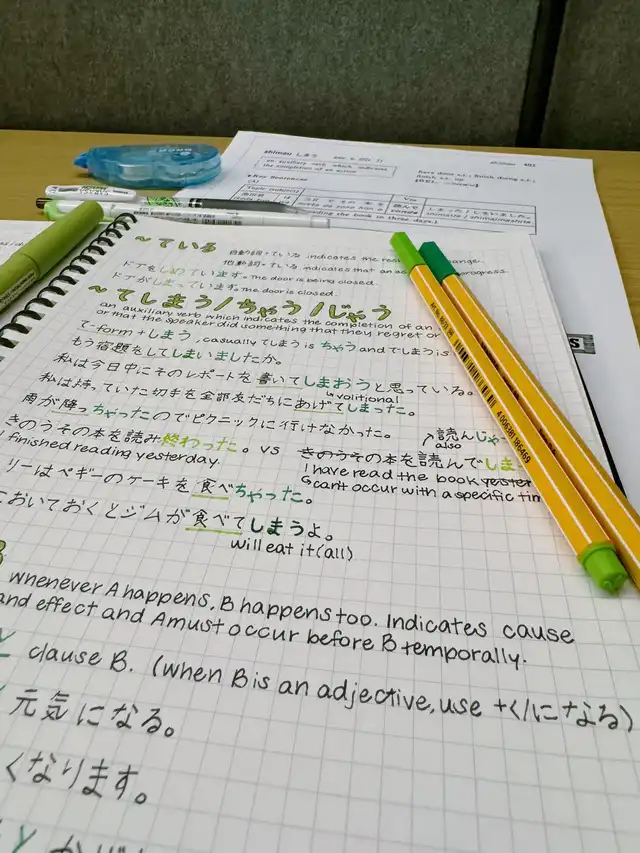 shimau しまう
shimau 403
an auxiliary verb which indicates
the completion of an action
have done s.t.; finish doing s.t.;
finish s.t. up
Key Sentences
(A)
Topic (subject)
Vte
しまった / しまいました。
shimatta / shimaimashita
ding the book in three days.)
~ている
自動詞+ている indicates the res change.
他動詞+ている indicates that an ac progress
ドアをしめています。The door is being closed.
ドアがしまっています。The door is closed.
~てしまう/ちゃう/じゃう
an auxiliary verb which indicates the completion of an
or that the speaker did something that they regret or
て-form + しまう, casually てしまう is ちゃう and でしまう is
もう宿題をしてしまいましたか。
私は今日中にそのレポートを書いてしまおうと思っている。
volitional
私は持っていた切手を全部友だちにあげてしまった。
雨が降っちゃったのでピクニックに行けなかった。
読んじゃ
also
きのうその本を読み終わった。 vs きのうその本を読んでしま
finished reading yesterday. I have read the book yester
can't occur with a specific tim
リーはペギーのケーキを食べちゃった。
においておくとジムが食べてしまうよ。
will eat it (all)
whenever A happens, B happens too. Indicates cause
and effect and A must occur before B temporally.
と clause B. (when B is an adjective, use +く/になる)
元気になる。
くなります。
と
4 006381 186469